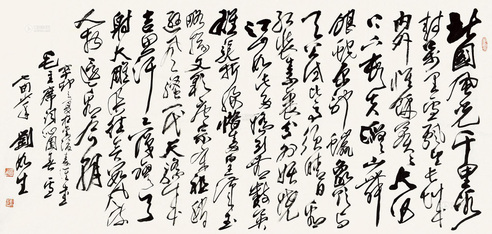 北國風光千里冰
封萬里雪飄望長城
內外惟餘莽莽大河
上下頓失滔滔山舞
銀蛇原馳蠟象欲與
天公試比高須晴日看
紅裝素裹分外妖嬈
江山如此多嬌引無數英
雄競折腰惜秦皇漢武
略輸文采唐宗宋祖稍
遜風騷一代天驕成
吉思汗只識彎弓
射大雕俱往矣數風流
人物還看今朝
毛主席詞沁園春雪